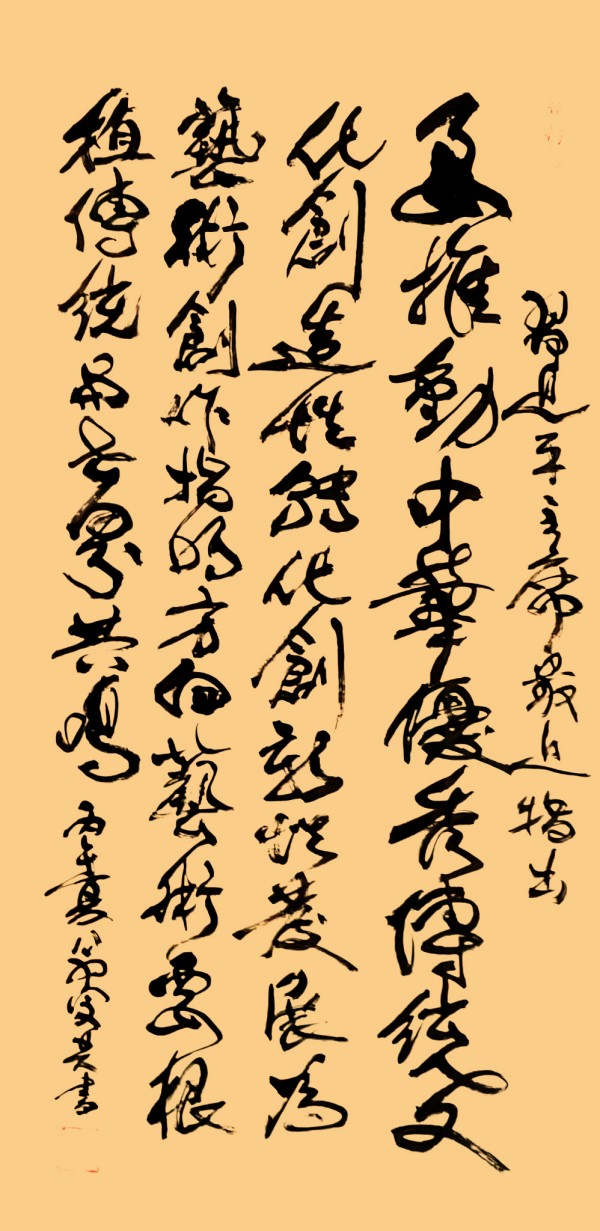 習近平主席最近指出
要推動中華優秀傳統文
化創造性轉化創新性發展為
藝術創作指明方向藝術要根
植傳統與世界共鳴
丙午夏 書